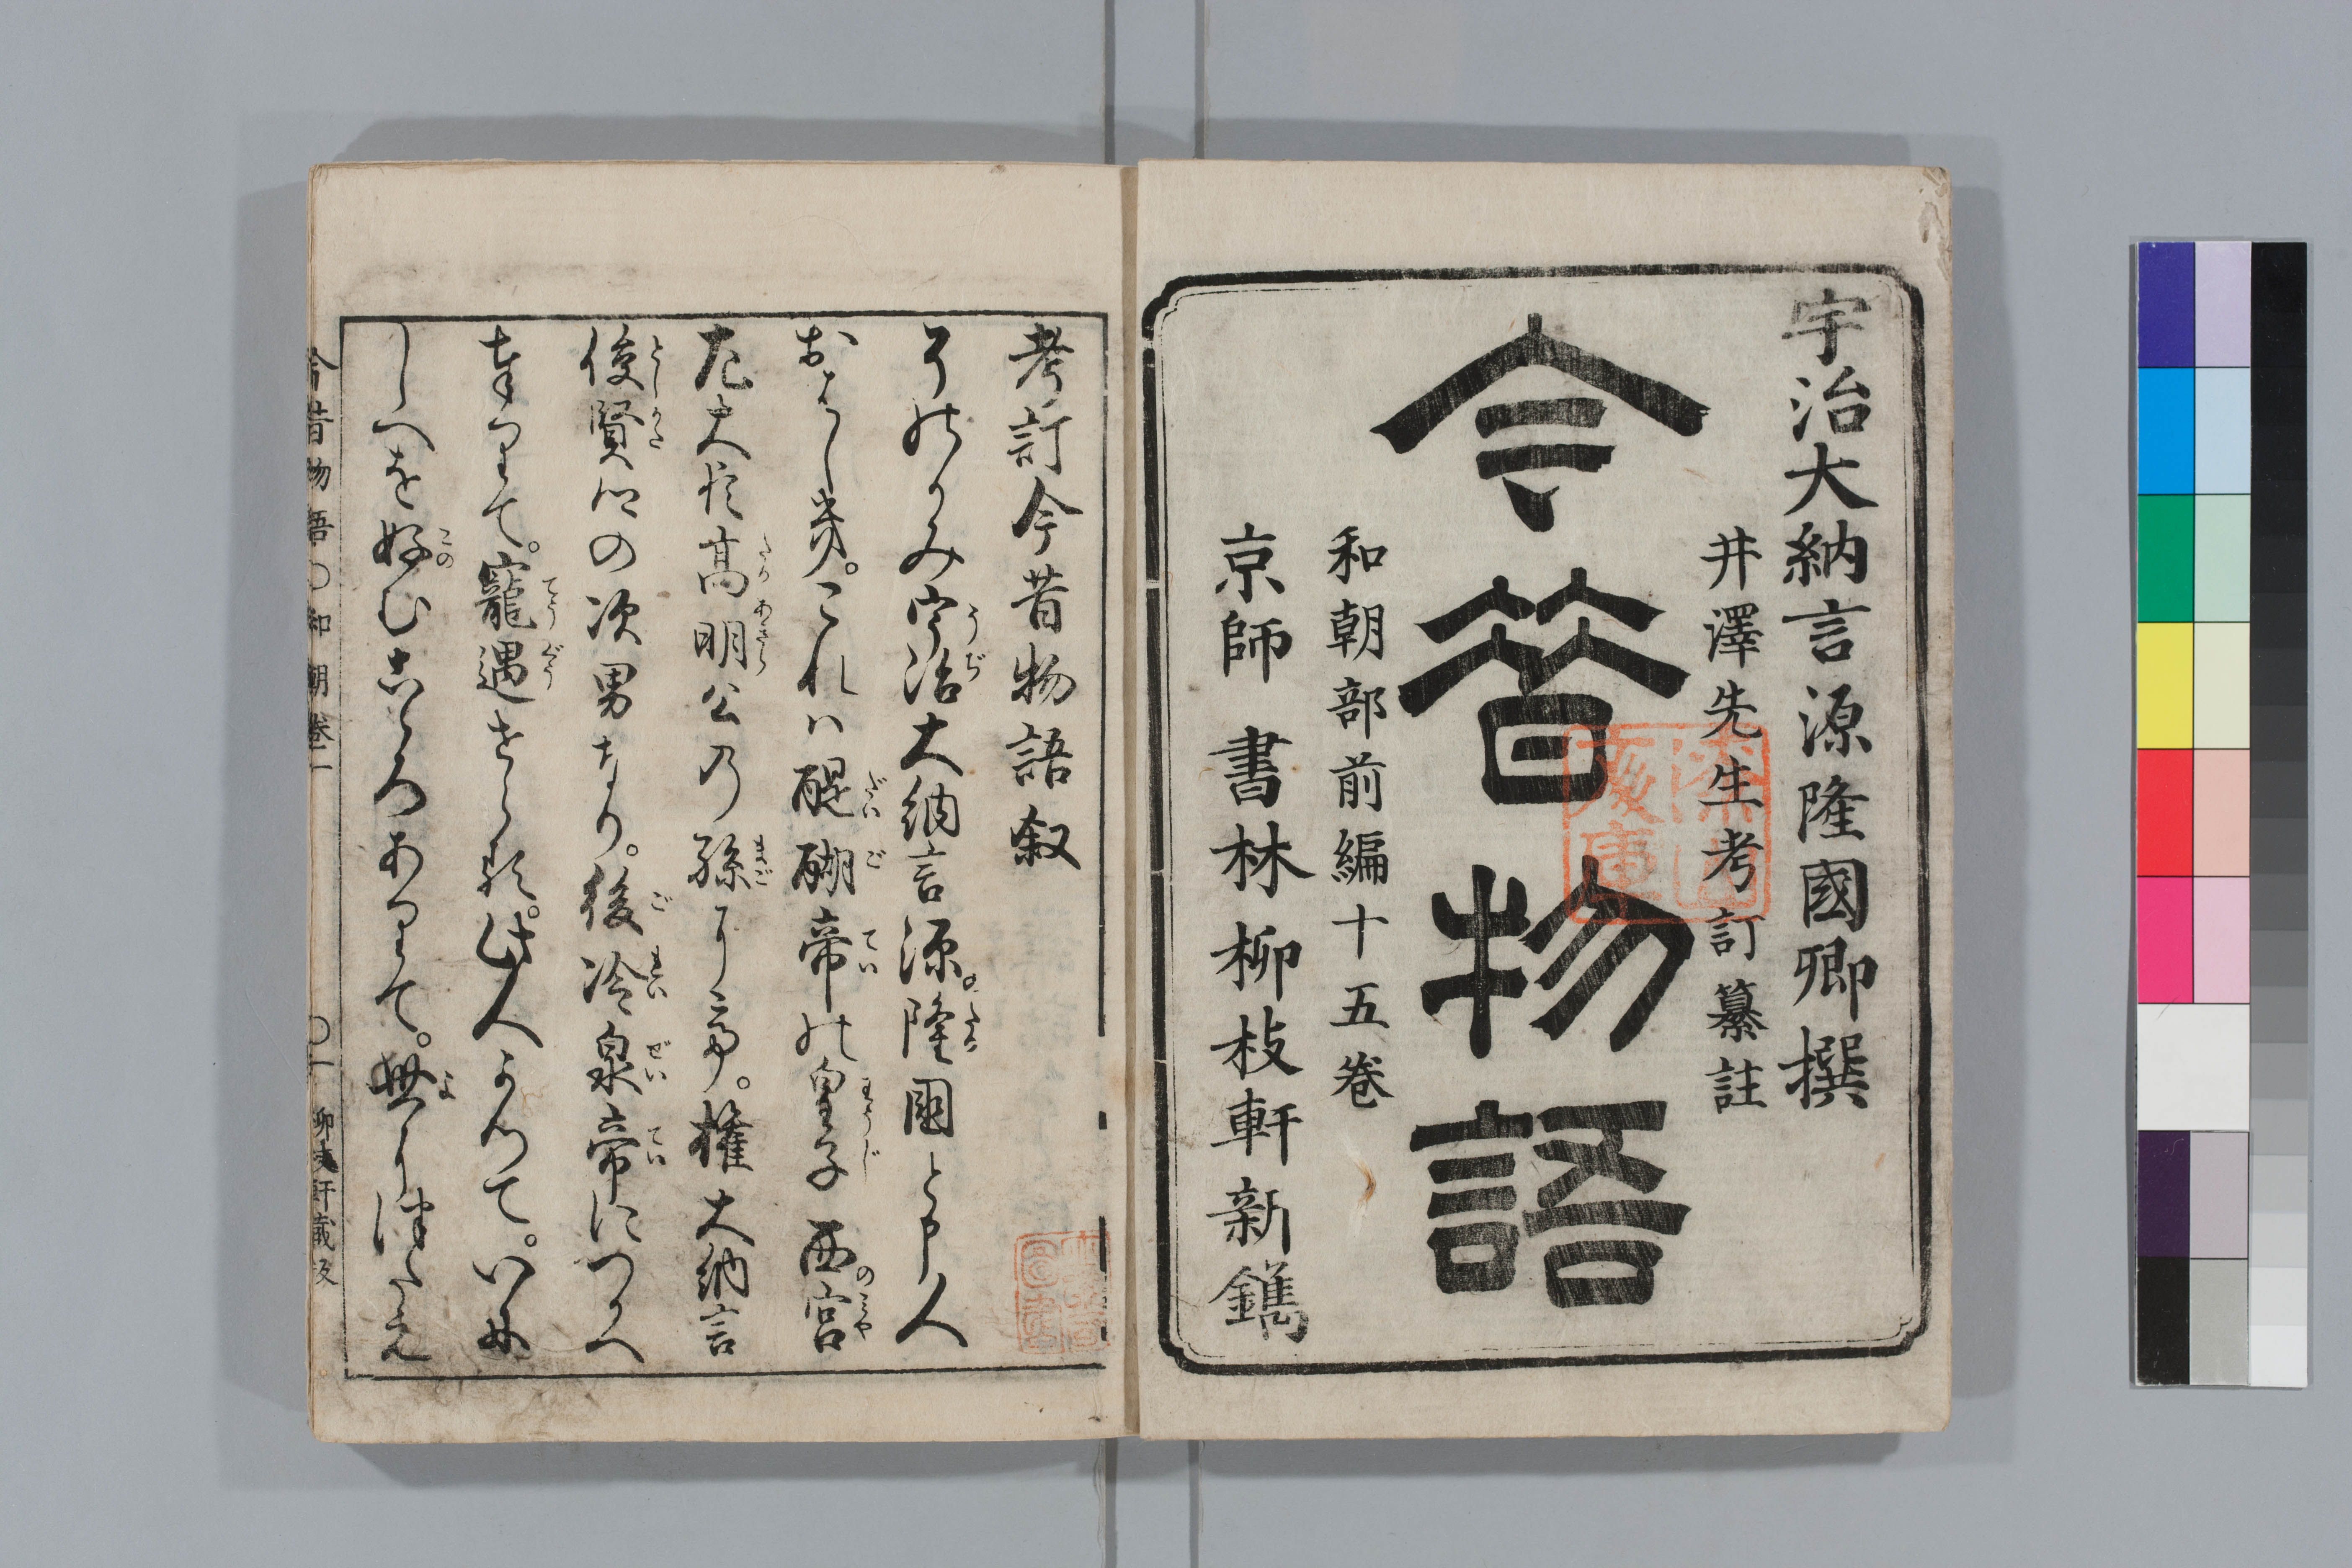 宇治大納言源隆國卿撰
井澤先生考訂纂註
今昔物語
和朝部前編十五卷
京師 書林柳枝軒新鐫
考訂今昔物語叙
そのかみ宇治大納言源隆國と申人
おはしき。これハ醍醐帝の皇子西宮
左大臣高明公乃孫にして。權大納言
俊賢卿の次男なり。後冷泉帝につかへ
奉りて。寵遇せらる。此人よつて。いに
しへを好むこゝろありて。世に傳
今昔物語○和朝卷一 ○一 柳枝軒蔵板